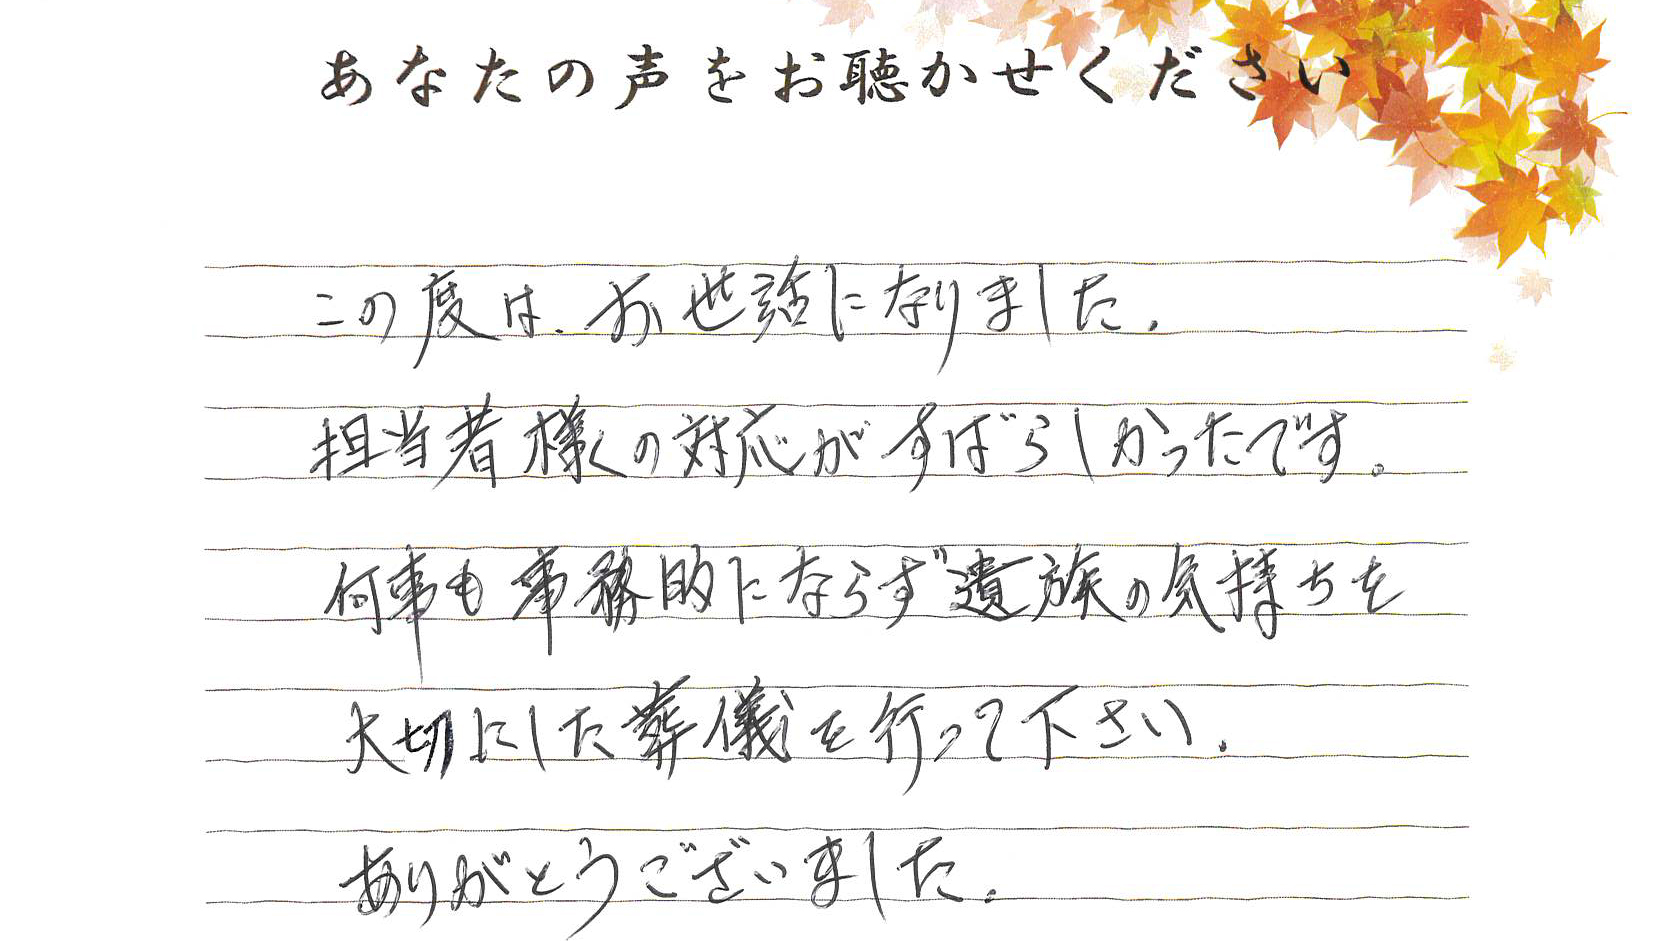 あなたの声をお聴かせください
この度は、お世話になりました。
担当者様の対応がすばらしかったです。
何事も事務的にならず遺族の気持ちを
大切にした葬儀を行って下さい。
ありがとうございました。